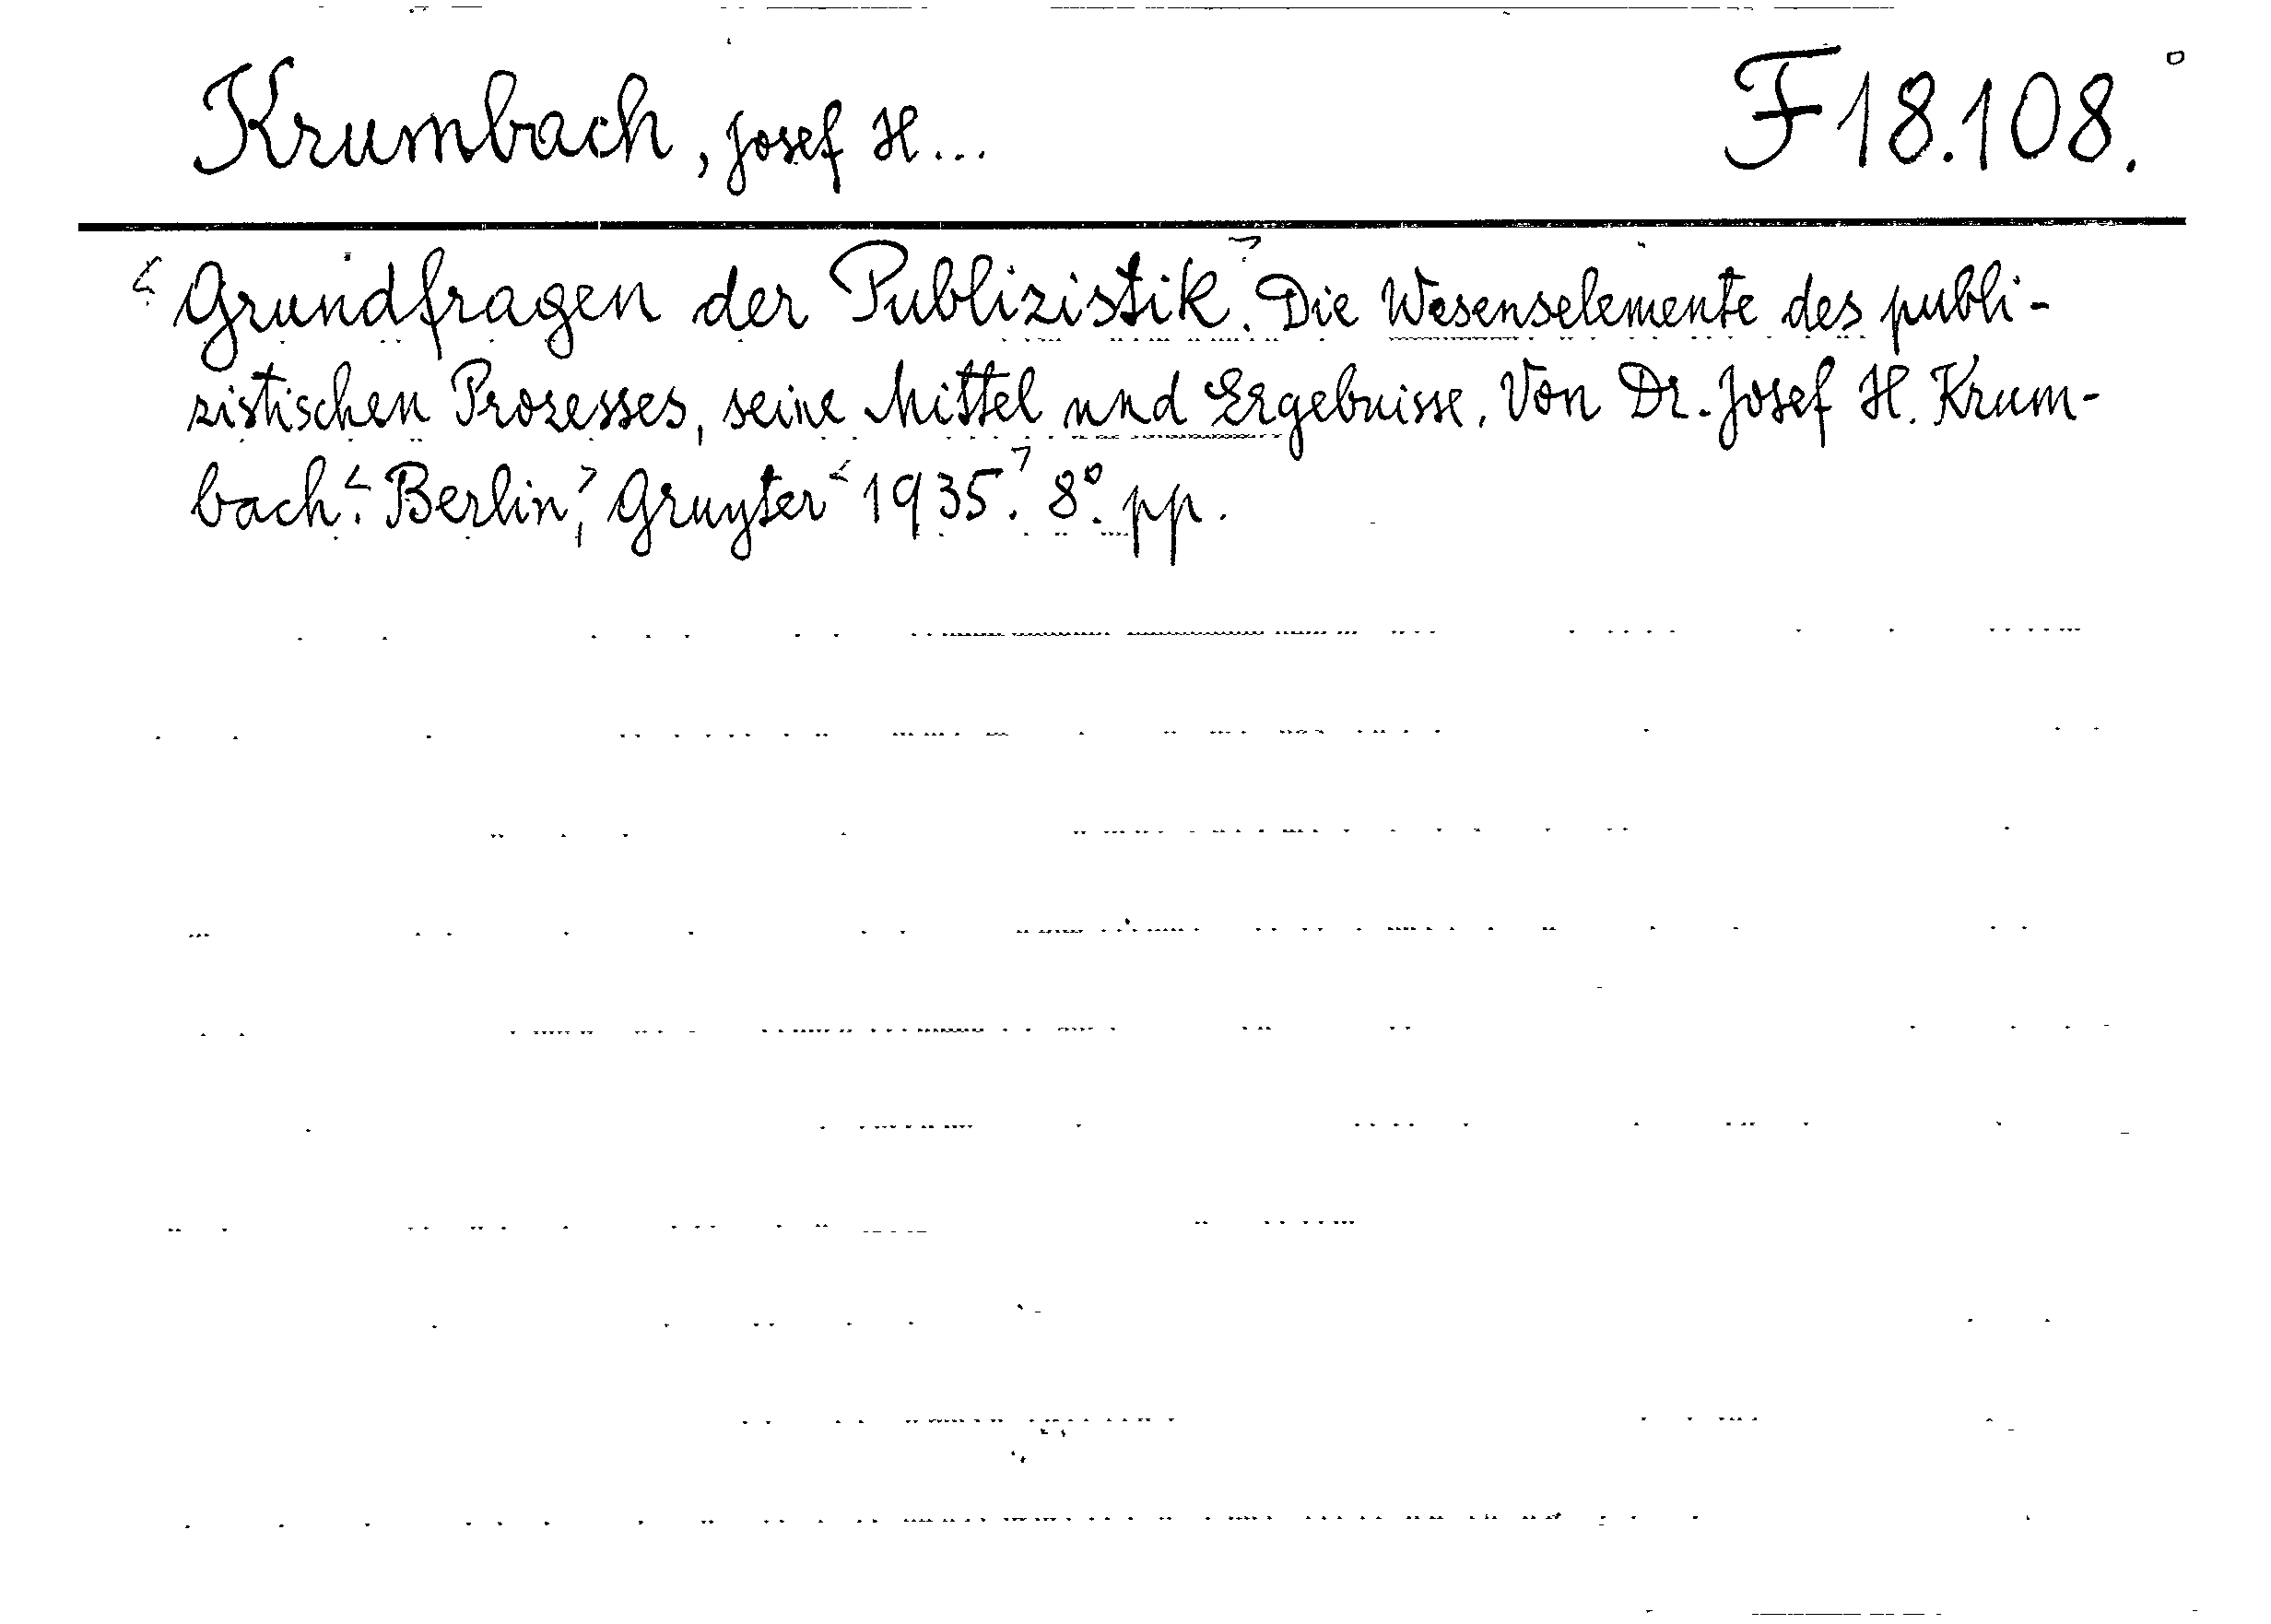 Krumbach, Josef H... F 18.108.
Grundfragen der Publizistik. Die Wesenselemente des publi-
zistischen Prozesses, seine Mittel und Ergebnisse. Von Dr. Josef H. Krum-
bach. Berlin, Gruyter 1935. 8° pp.